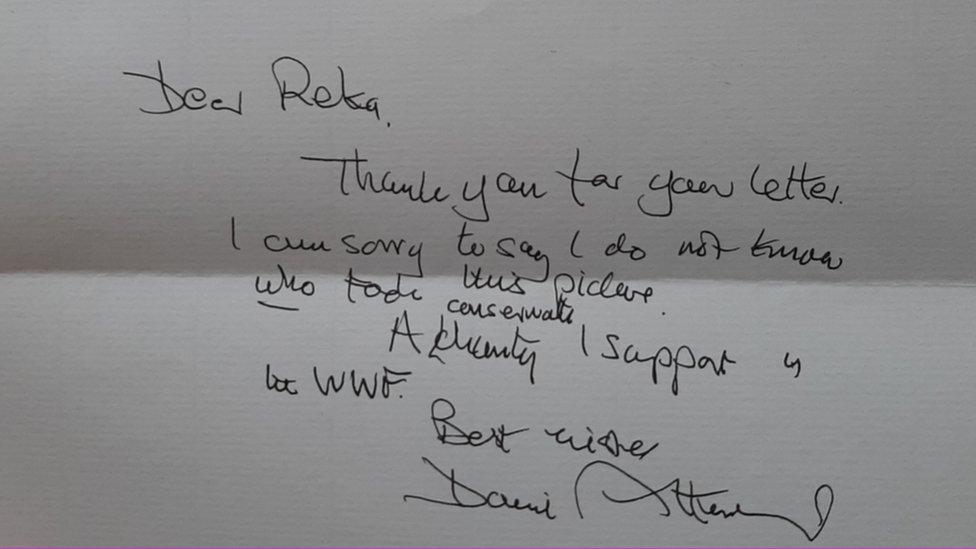 Dear Reka,
Thank you for your letter.
I am sorry to say I do not know
who took this picture.
conservation
A charity I support is
the WWF.
Best wishes
David Attenborough